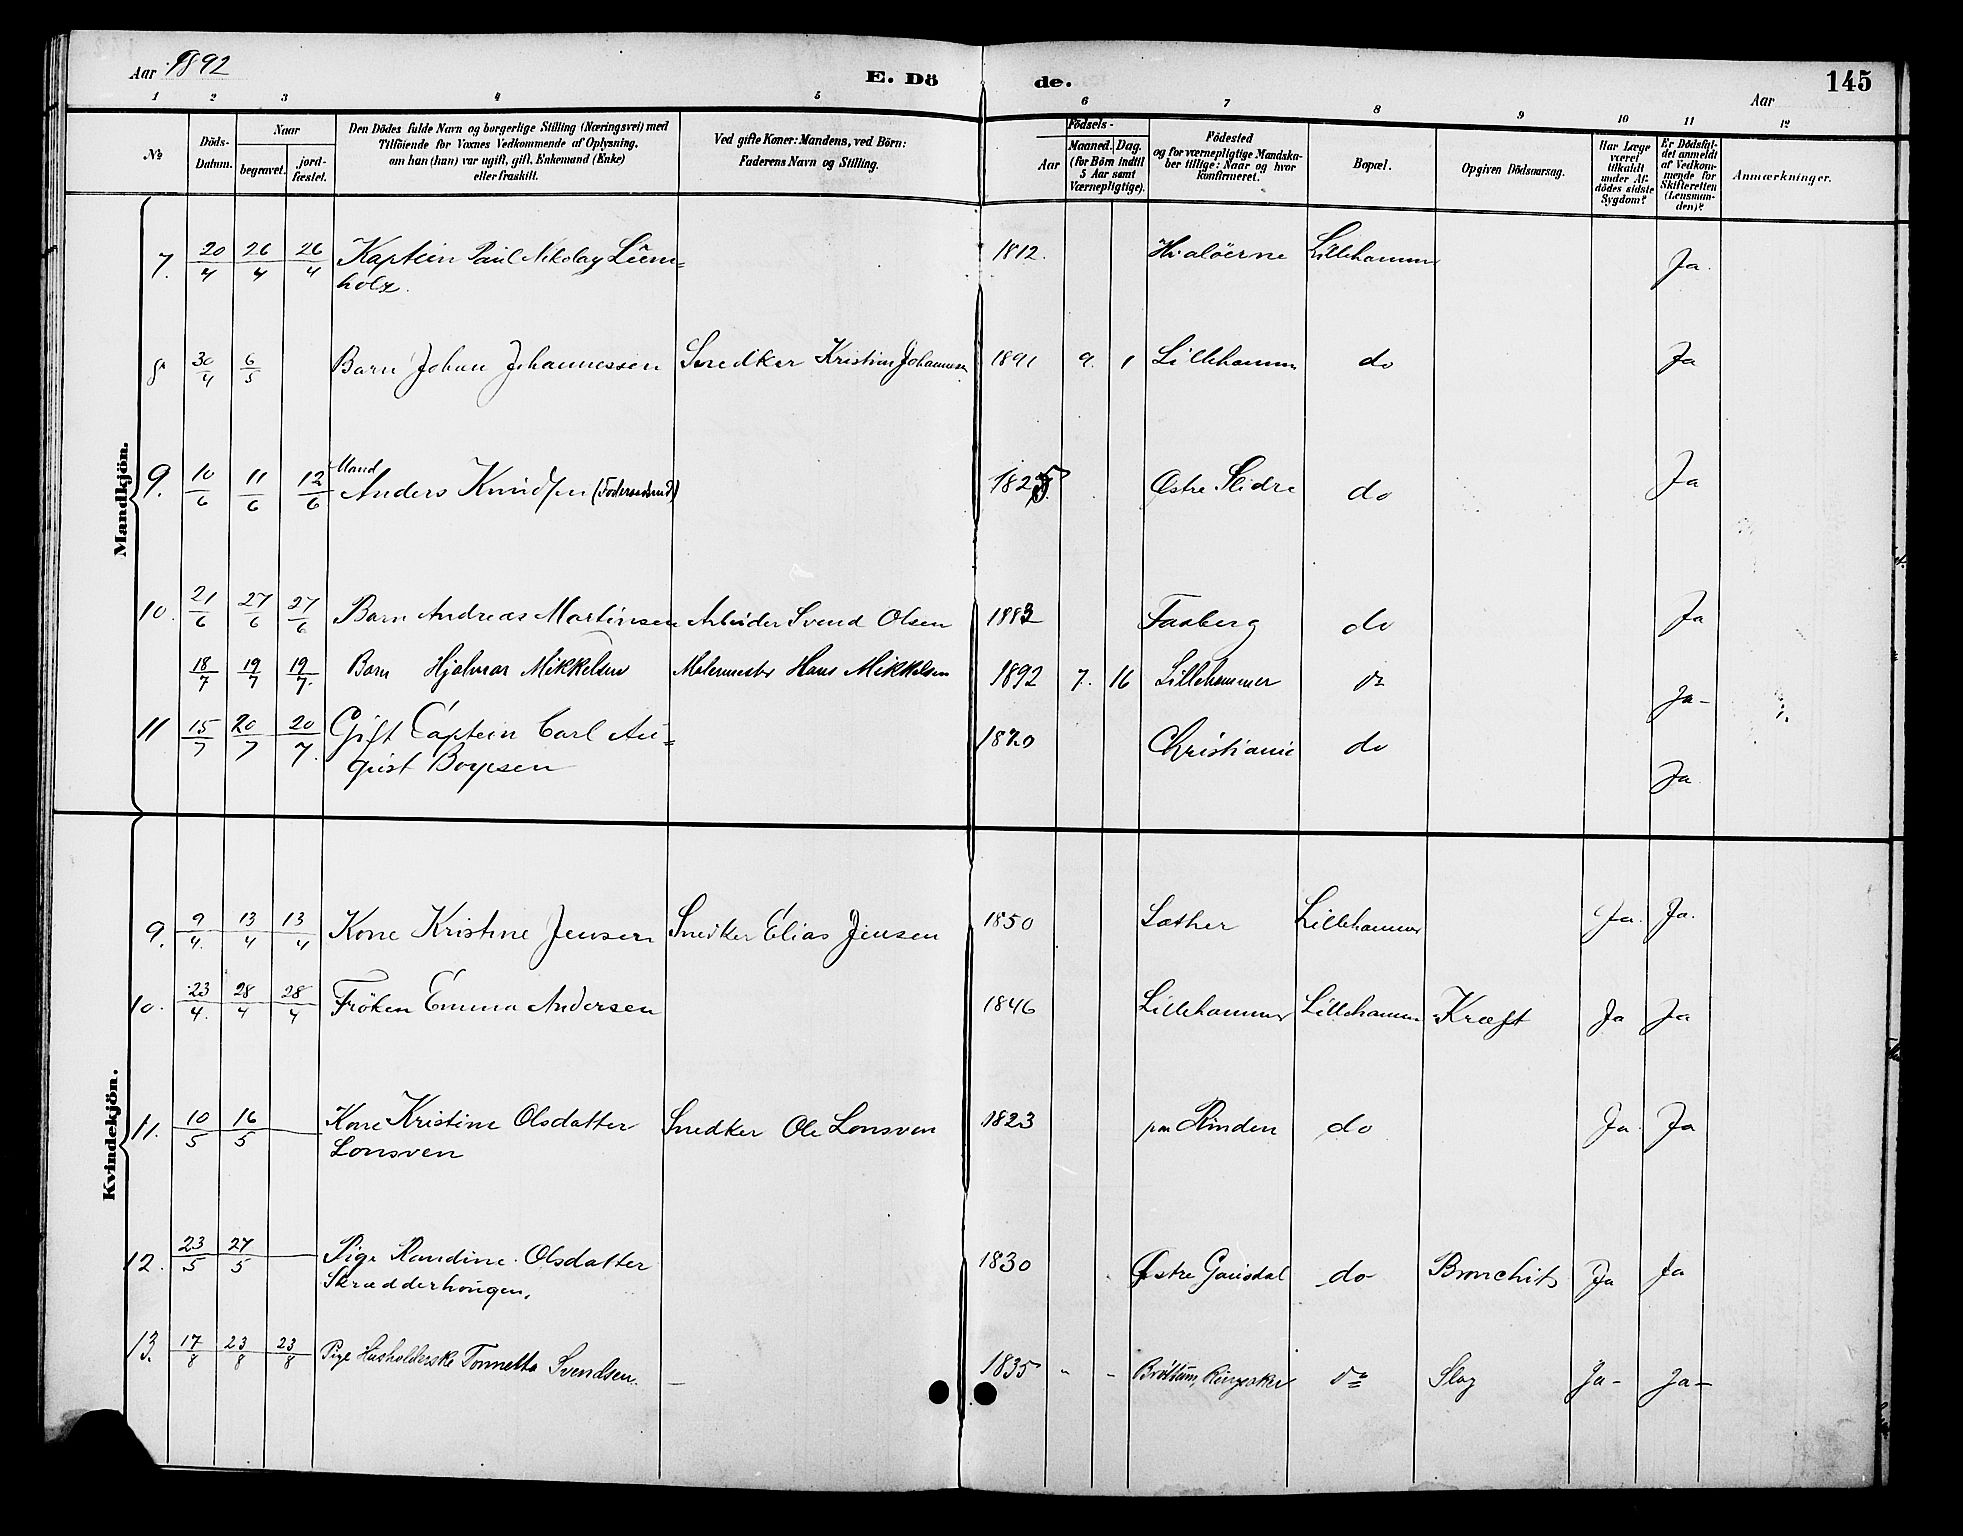 Aar 1892
E. Dö de.
145
Aar
1 2 3 4 5 6 7 8 9 10 11 12
No
Döds-Datum.
Naar
begravet.
jord-fæstet.
Den Dödes fulde Navn og borgerlige Stilling (Næringsvei) med
Tilföiende for Voxnes Vedkommende af Oplysning,
om han (hun) var ugift, gift, Enkemand (Enke)
eller fraskilt.
Ved gifte Koner: Mandens, ved Börn:
Faderens Navn og Stilling.
Födsels-
Aar
Maaned. Dag.
(for Börn indtil
5 Aar samt
Værnepligtige).
Födested
og for værnepligtige Mandska-
ber tillige: Naar og hvor
konfirmeret.
Bopæl.
Opgiven Dödsaarsag.
Har Læge
været
tilkaldt
under Af-
dödes sidste
Sygdom?
Er Dödsfal-
det anmeldt
af Vedkom-
mende for
Skifteretten
(Lensman-
den)?
Anmærkninger.
Mandkjön.
7. 20/4 26/4 26/4 Kaptein Paul Nikolay 1812. Lillehammer Ja.
8 30/4 6/5 Barn Johan Johannessen Snedker Kristian Johannesen 1891 9. 1 Lillehammer do Ja
9. 10/6 11/6 12/6 Mand
Anders Knudsen 1825 Østre Slidre do Ja
10. 21/6 27/6 27/6 Barn Andreas Martinsen Arbeider Svend Olsen Faaberg do Ja
18/7 19/7 19/7. Barn Hjalmar Mikkelsen Malermester Hans Mikkelsen 1892 7. 16 Lillehammer do Ja-
11 15/7 20/7 20/7. Gift Captein Carl Au=
gust Boyesen 1820 Christiania do Ja.
Kvindekjön.
9. 9/4. 13/4 13/4 Kone Kristine Jensen Snedker Elias Jensen 1850 Lillehammer Ja. Ja.
10. 23/4. 28/4 28/4 Fröken Emma Andersen 1846 Lillehammer Lillehammer Kræft Ja Ja
11. 10/5 16/5 Kone Kristine Olsdatter
Lonsven Snedker Ole Lonsven 1823 paa Rinden do Ja Ja
12. 23/5 27/5 Pige Randine Olsdatter
Skrædderhougen, 1830 Østre Gausdal do Bronchit Ja Ja
13. 17/8 23/8 23/8 Pige Husholderske Tonnette Svendsen. — 1835 - - Brøttum, Ringsaker do Slag Ja- Ja-